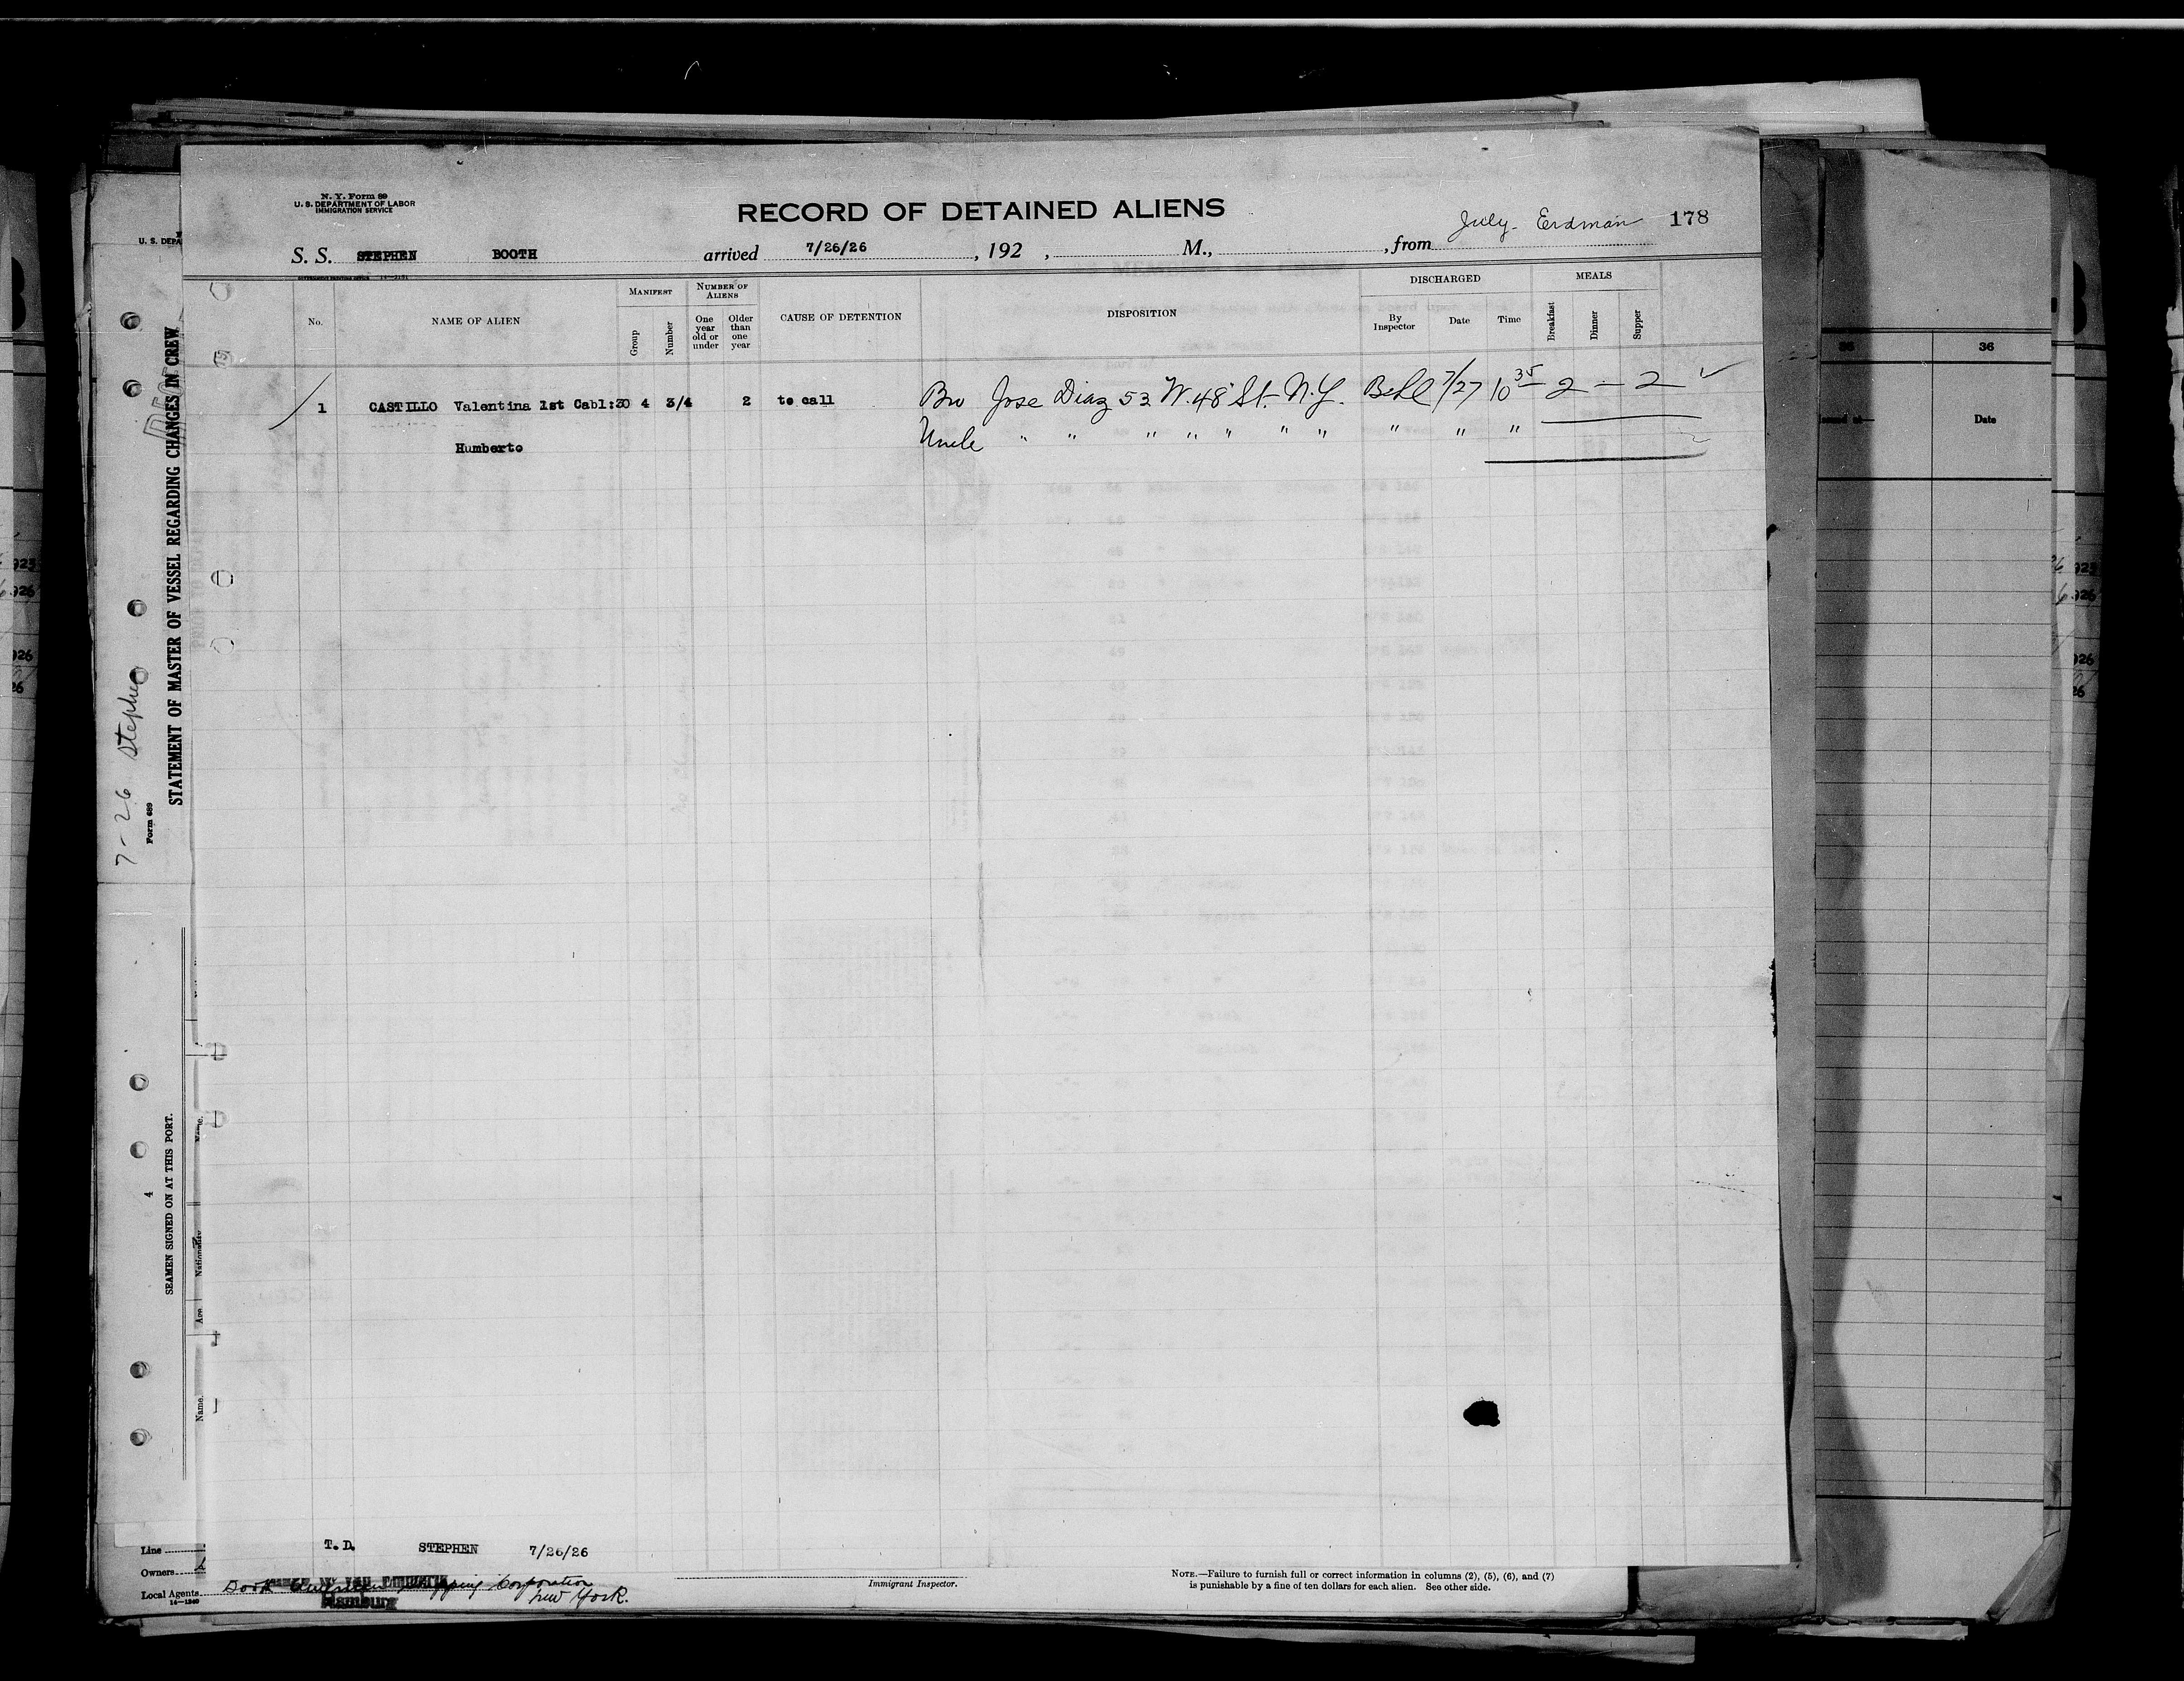 N. Y. Form 89
U. S. DEPARTMENT OF LABOR
IMMIGRATION SERVICE
RECORD OF DETAINED ALIENS
July- Erdman 178
S. S. STEPHEN BOOTH arrived 7/26/26 , 192 , M., , from
No.
NAME OF ALIEN
MANIFEST
Group
Number
NUMBER OF ALIENS
One year old or under
Older than one year
CAUSE OF DETENTION
DISPOSITION
DISCHARGED
By Inspector
Date
Time
MEALS
Breakfast
Dinner
Supper
1 CASTILLO Valentina 1st Cabl:30 4 3/4 2 to call Bro Jose Diaz 53 W. 48 St. N.Y. 7/27 10 35 2 — 2 ✓
Humberto Uncle " " " " " " " " " "
T. D. STEPHEN 7/26/26
Immigrant Inspector.
NOTE.—Failure to furnish full or correct information in columns (2), (5), (6), and (7)
is punishable by a fine of ten dollars for each alien. See other side.
U. S. DEPA
STATEMENT OF MASTER OF VESSEL REGARDING CHANGES IN CREW
7-26 Stephen
Form 689
SEAMEN SIGNED ON AT THIS PORT.
4
Name.
Age
Nationality
Name.
Line
Owners
Local Agents
14—1240
Corporation
New York.
Hamburg
36
36
Date